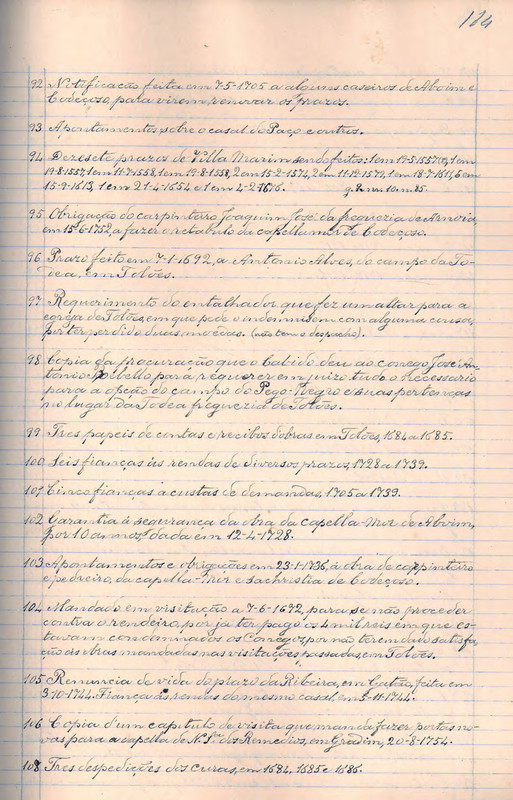 124
92 Notificação feita em 7-5-1705 a alguns caseiros de Aboim e
Codeçoso, para virem renovar os prazos.
93 Apontamentos sobre o casal do Paço e outros.
94 Dezesete prazos de Villa Marim sendo feitos: 1 em 19-5-1557, 1 em
19-8-1557, 1 em 11-7-1558, 1 em 19-8-1558, 2 em 15-2-1574, 2 em 11-12-1574, 1 em 18-7-1611, 6 em
15-9-1613, 1 em 21-4-1654 e 1 em 4-2-1676.
95 Obrigação do carpinteiro Joaquim José, da freguezia de Arnoia,
em 15-6-1752, a fazer o retabulo da capella mór de Codeçoso.
96 Prazo feito em 7-1-1692, a Antonio Alves, do campo da To-
dea, em Tolões.
97 Requerimento do entalhador que fez um altar para a
egreja de Tolões, em que pede o indemnisem com alguma cousa,
por ter perdido duas moedas. (não tem o despacho).
98 Copia da procuração que o Cabido deu ao conego José An-
tonio Rebello para requerer em juizo tudo o necessario
para a opção do campo do Pego-Negro e suas pertenças
no lugar da Todea freguezia de Tolões.
99 Tres papeis de contas e recibos d'obras em Tolões, 1684 a 1685.
100 Seis fianças ás rendas de diversos prazos, 1728 a 1739.
101 Cinco fianças a custas de demandas, 1705 a 1739.
102 Garantia á segurança da obra da capella-mór de Aboim,
por 10 annos, dada em 12-4-1728.
103 Apontamentos e obrigações em 23-1-1736, á obra de carpinteiro
e pedreiro, da capella-mór e sachristia de Codeçoso.
104 Mandado em visitação a 7-6-1692, para se não proceder
contra o rendeiro, por já ter pago os 4 mil reis em que es-
tavam condemnados os Conegos, por não terem dado satisfa-
ção ás obras mandadas nas visitações passadas, em Tolões.
105 Renuncia de vida do prazo da Ribeira, em Gatão, feita em
3-10-1744. Fiança ás rendas do mesmo casal, em 5-11-1744.
106 Copia d'um capitulo de visita que manda fazer portas no-
vas para a capella de N. Sra. dos Remedios, em Gradim, 20-8-1754.
108 Tres despedições dos curas, em 1684, 1685 e 1686.